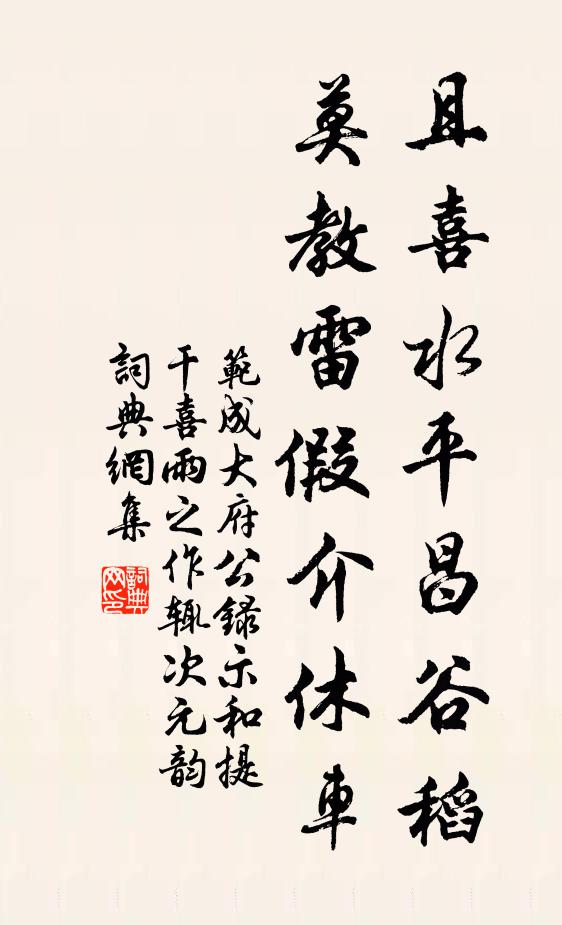 且喜水平昌谷稻
莫教雷假介休車
範成大府公録示和提
干喜雨之作輒次元韵
詞典網集
詞典
网印